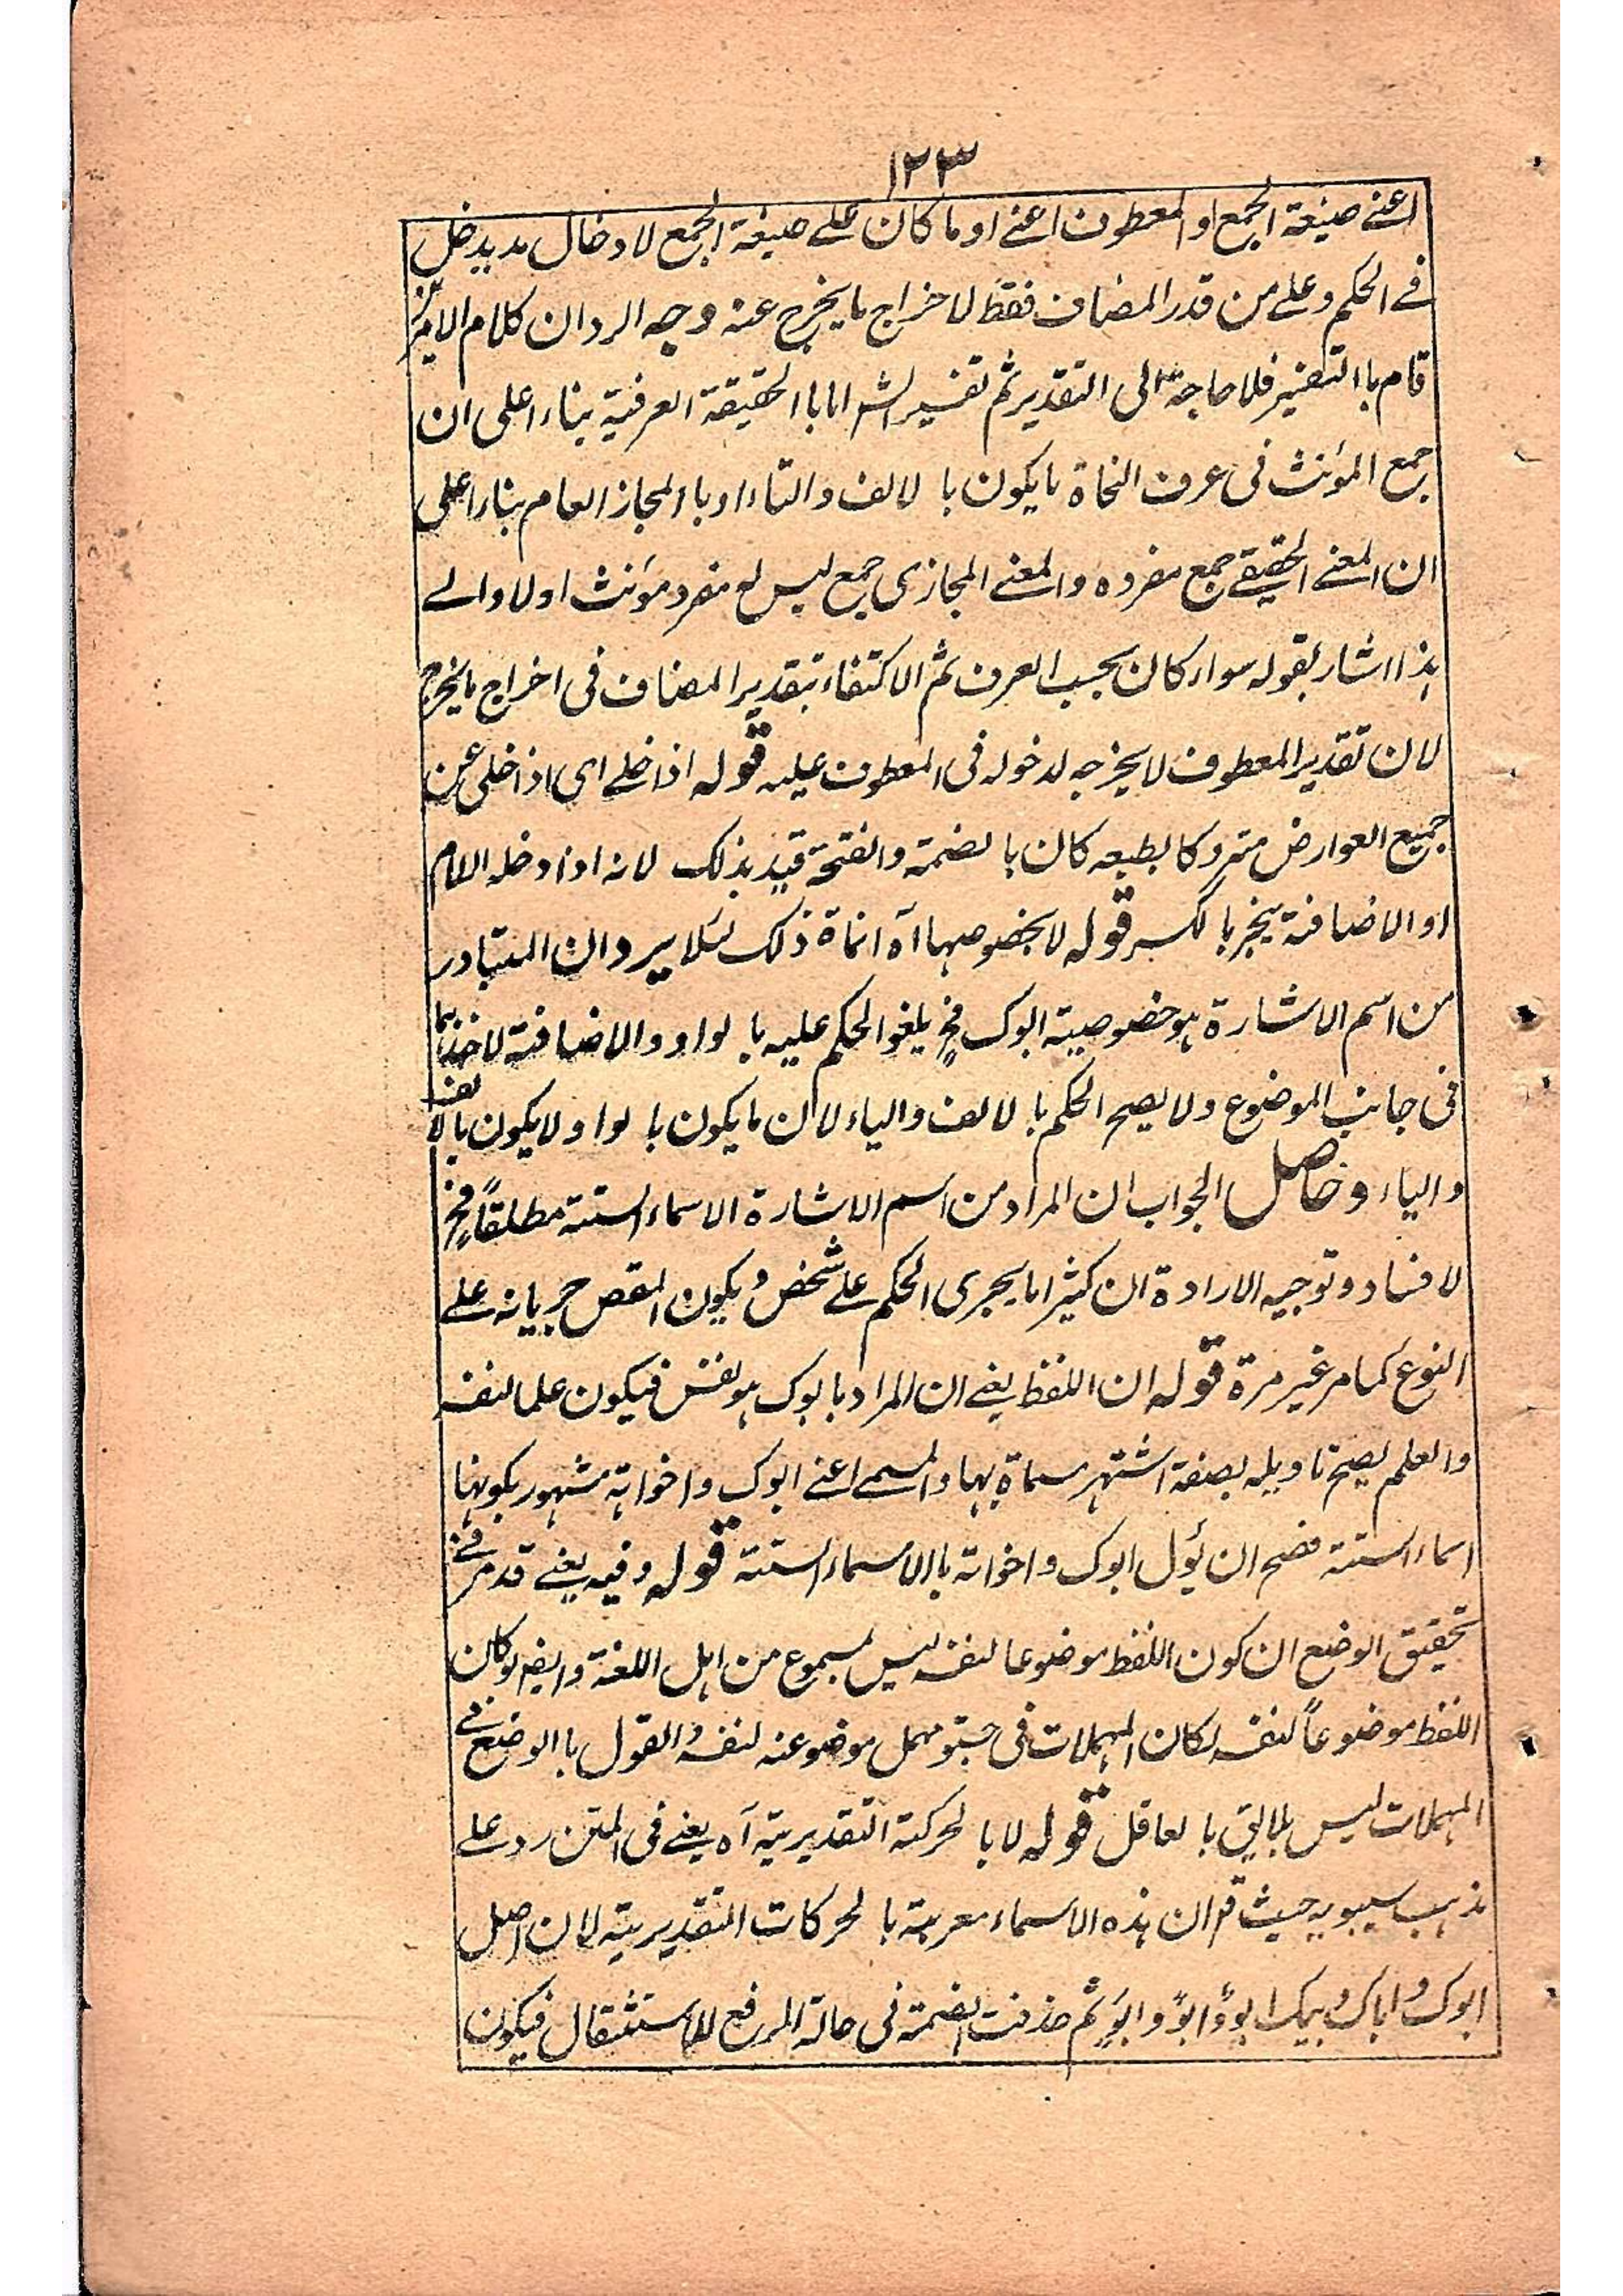 ١٢٣
اعنے صیغة الجمع او المعطوف اعنے او ما کان علے صیغة الجمع لادخال مدیدخل
فے الحکم و علے من قدر المضاف فقط لاخراج ما یخرج عنه وجه الرد ان کلام الامرین
قام باالتفسیر فلا حاجة الی التقدیر ثم تفسیر الشر اما باالحقیقة العرفیة بناء اعلی ان
جمع المؤنث فی عرف النحاة ما یکون با لالف والتاء او باالمجاز العام بناء اعلی
ان المعنے الحقیقے جمع مفرده والمعنے المجازی جمع لیس له مفرد مؤنث اولا والے
هذا اشار بقوله سواء کان بحسب العرف ثم الاکتفاء بتقدیر المضاف فی اخراج ما یخرج
لان تقدیر المعطوف لا یخرجه لدخوله فی المعطوف علیه قوله اذا خلے ای اذا خلی عن
جمیع العوارض متروکا بطبعه کان با لضمة والفتحة قید بذلک لانه اذا دخله اللام
او الاضافة ینجر بالکسر قوله لا بخصوصها آه انماة ذلک لئلا یرد ان المتبادر
من اسم الاشارة هو خصوصیة ابوک فح یلغو الحکم علیه با لواو والاضافة لاخذهما
فی جانب الموضوع ولا یصح الحکم با لالف والیاء لان ما یکون با لواو لا یکون بالالف
والیاء و حاصل الجواب ان المراد من اسم الاشارة الاسماء الستة مطلقاً فح
لا فساد و توجیه الارادة ان کثیرا ما یجری الحکم علے شخص ویکون المقص جریانه علے
النوع کما مر غیر مرة قوله ان اللفظ یعنے ان المراد بابوک هو نفسه فیکون علما لنفسه
والعلم یصح تاویله بصفة اشتهر مسماة بها والمسمے اعنے ابوک واخواته مشهور بکونها
اسماء الستة فصح ان یؤل ابوک واخواته باالاسماء الستة قوله وفیه یعنے قد مر فے
تحقیق الوضع ان کون اللفظ موضوعا لنفسه لیس بمسموع من اهل اللغة وایضا لو کان
اللفظ موضوعاً لنفسه لکان المهملات فی جسق مهمل موضوعة لنفسه والقول باالوضع فے
المهملات لیس بلایق با لعاقل قوله لا با لحرکة التقدیریة آه یعنے فی المتن رد علے
مذهب سیبویه حیث قم ان هذه الاسماء معربة با لحرکات التقدیریة لان اصل
ابوک و اباک و ابیک ابوٌ و ابوً و ابوٍ ثم حذفت الضمة فی حالة الرفع للاستثقال فیکون